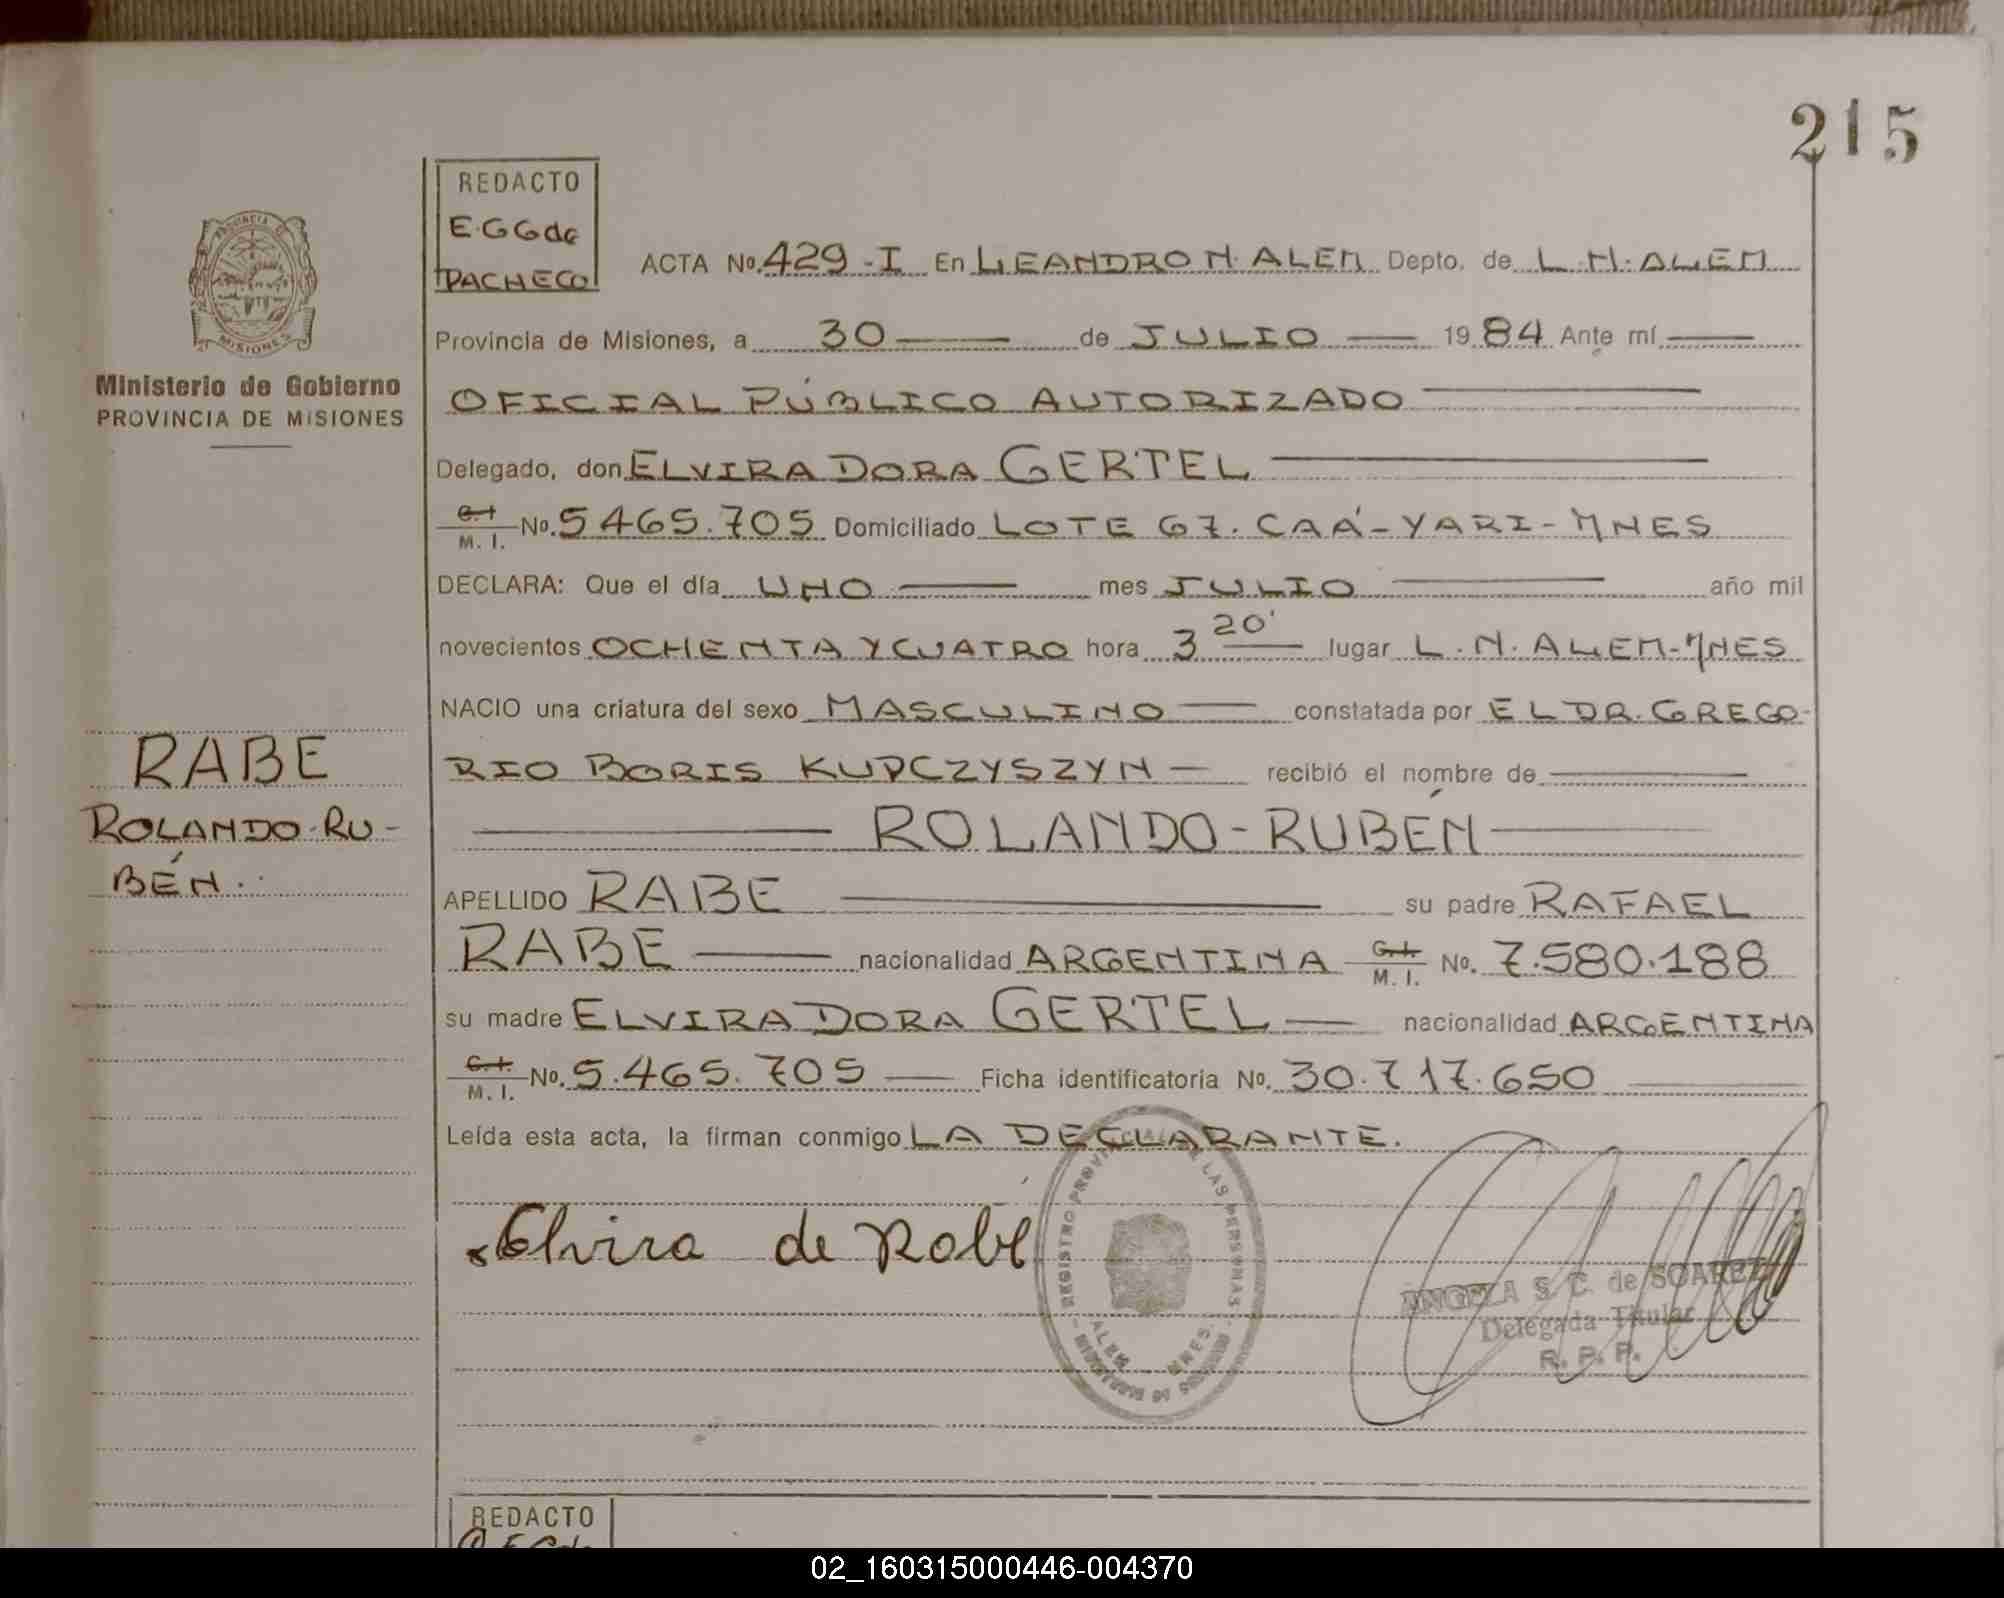 215
REDACTO
E.GGde
PACHECO
ACTA No. 429-I En LEANDRO N. ALEM Depto. de L.N. ALEM
Provincia de Misiones, a 30 de JULIO 1984 Ante mí
OFICIAL PÚBLICO AUTORIZADO
Delegado, don ELVIRA DORA GERTEL
C.I. M. I. No. 5465.705 Domiciliado LOTE 67. CAÁ-YARI-MNES
DECLARA: Que el día UNO mes JULIO año mil
novecientos OCHENTA Y CUATRO hora 3 20' lugar L.N. ALEM-MNES
NACIO una criatura del sexo MASCULINO constatada por EL DR. GREGO-
RIO BORIS KUPCZYSZYN recibió el nombre de
ROLANDO-RUBÉN
APELLIDO RABE su padre RAFAEL
RABE nacionalidad ARGENTINA C.I. M. I. No. 7.580.188
su madre ELVIRA DORA GERTEL nacionalidad ARGENTINA
C.I. M. I. No. 5.465.705 Ficha identificatoria No. 30.717.650
Leída esta acta, la firman conmigo LA DECLARANTE.
Elvira de Rabe
REGISTRO PROVINCIAL DE LAS PERSONAS
ALEM MNES.
MINISTERIO DE GOBIERNO
ANGELA S. C. de SOAREZ
Delegada Titular
R. P. P.
PROVINCIA DE
MISIONES
Ministerio de Gobierno
PROVINCIA DE MISIONES
RABE
ROLANDO-RU-
BÉN.
REDACTO
02_160315000446-004370